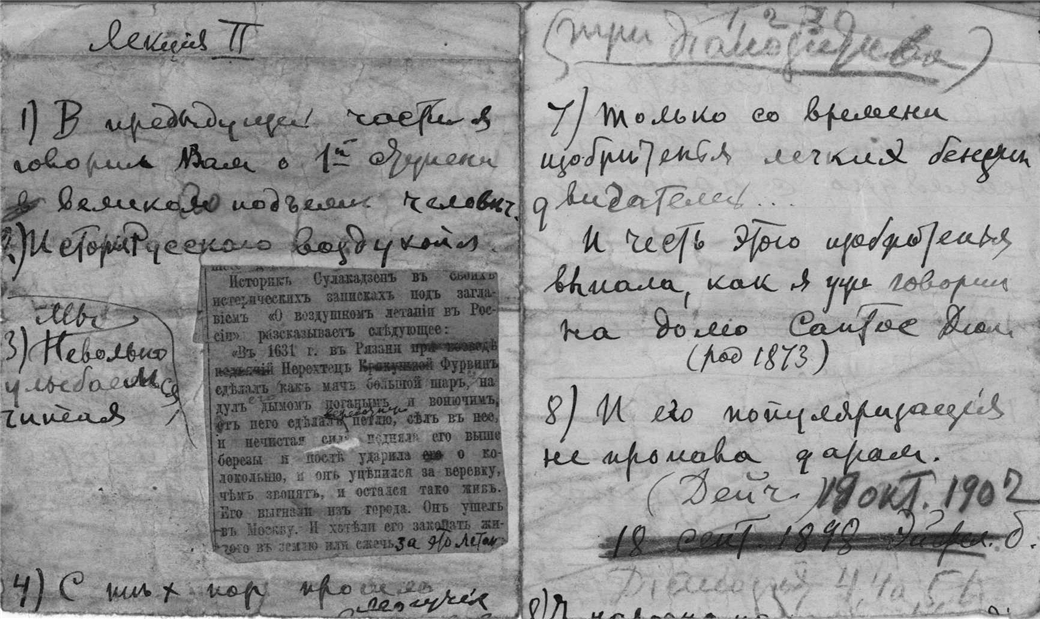 Лекция II
1) В предыдущей части я
говорил Вам о 1ой
великом подъеме человеч.
2) История Русского воздухопл.
Историкъ Сулакадзевъ въ своихъ
исторических записках подъ загла-
віемъ «О воздушномъ летаніи въ Рос-
сіи» разсказываетъ слѣдующее:
«Въ 1631 г. въ Рязани при воеводѣ
подьячій Нерехтецъ Крякутной Фурвинъ
сдѣлалъ какъ мячъ большой шаръ, на-
дулъ дымомъ поганымъ и вонючимъ,
отъ него сдѣлалъ петлю, сѣлъ въ нее,
и нечистая сила подняла его выше
березы и послѣ ударила его о ко-
локольню, и онъ уцѣпился за веревку,
чѣмъ звонятъ, и остался тако живъ.
Его выгнали изъ города. Онъ ушелъ
въ Москву. И хотѣли его закопать жи-
того въ землю или сжечь за это летан
Мы
3) Невольно
улыбаемся
читая
4) С тих пор прошло
(три 1 2 3)
7) только со времени
изобретения легких бензин
двигателей...
И честь этого изобретенья
выпала, как я уже говорил
на долю Сантос Дюм.
(род 1873)
8) И его популяризация
не пропала даром.
(Дейч.) 19 окт. 1902
18 сент 1898 б.
44 а 51